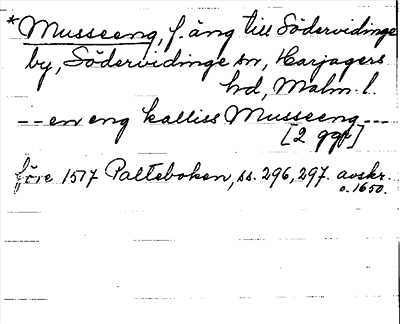 *Musseeng, f. äng till Södervidinge
by, Södervidinge sn, Harjagers
hd, Malm. l.
-- en eng kalliss Musseeng ---
[2 ggr]
före 1517 Palteboken, ss. 296, 297. avskr.
o. 1650.